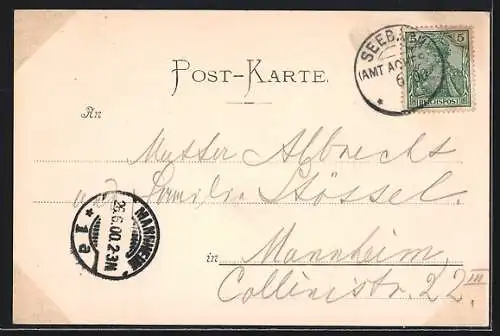 POST-KARTE.
SEEB
(AMT
5 5
REICHSPOST
An
Mutter Albrecht
u. Stössel.
MANNHEIM
26.6.00.2-3N
* 1a *
in Mannheim,
Collinistr. 22 III